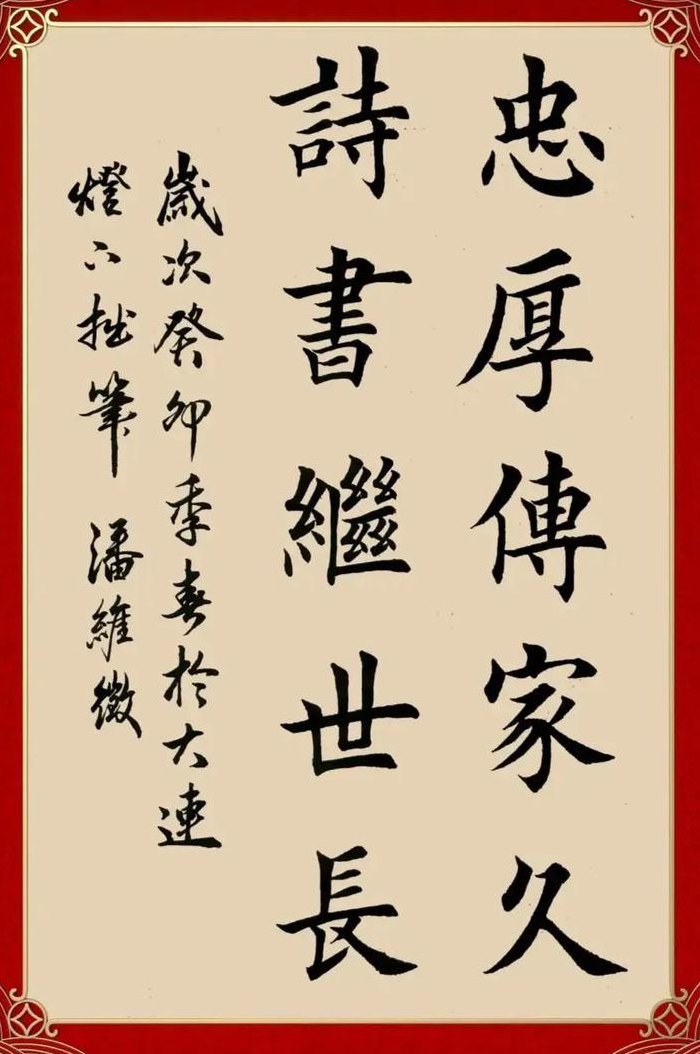 忠厚傳家久
詩書繼世長
歲次癸卯季春於大連
燈下拙筆 潘維徵